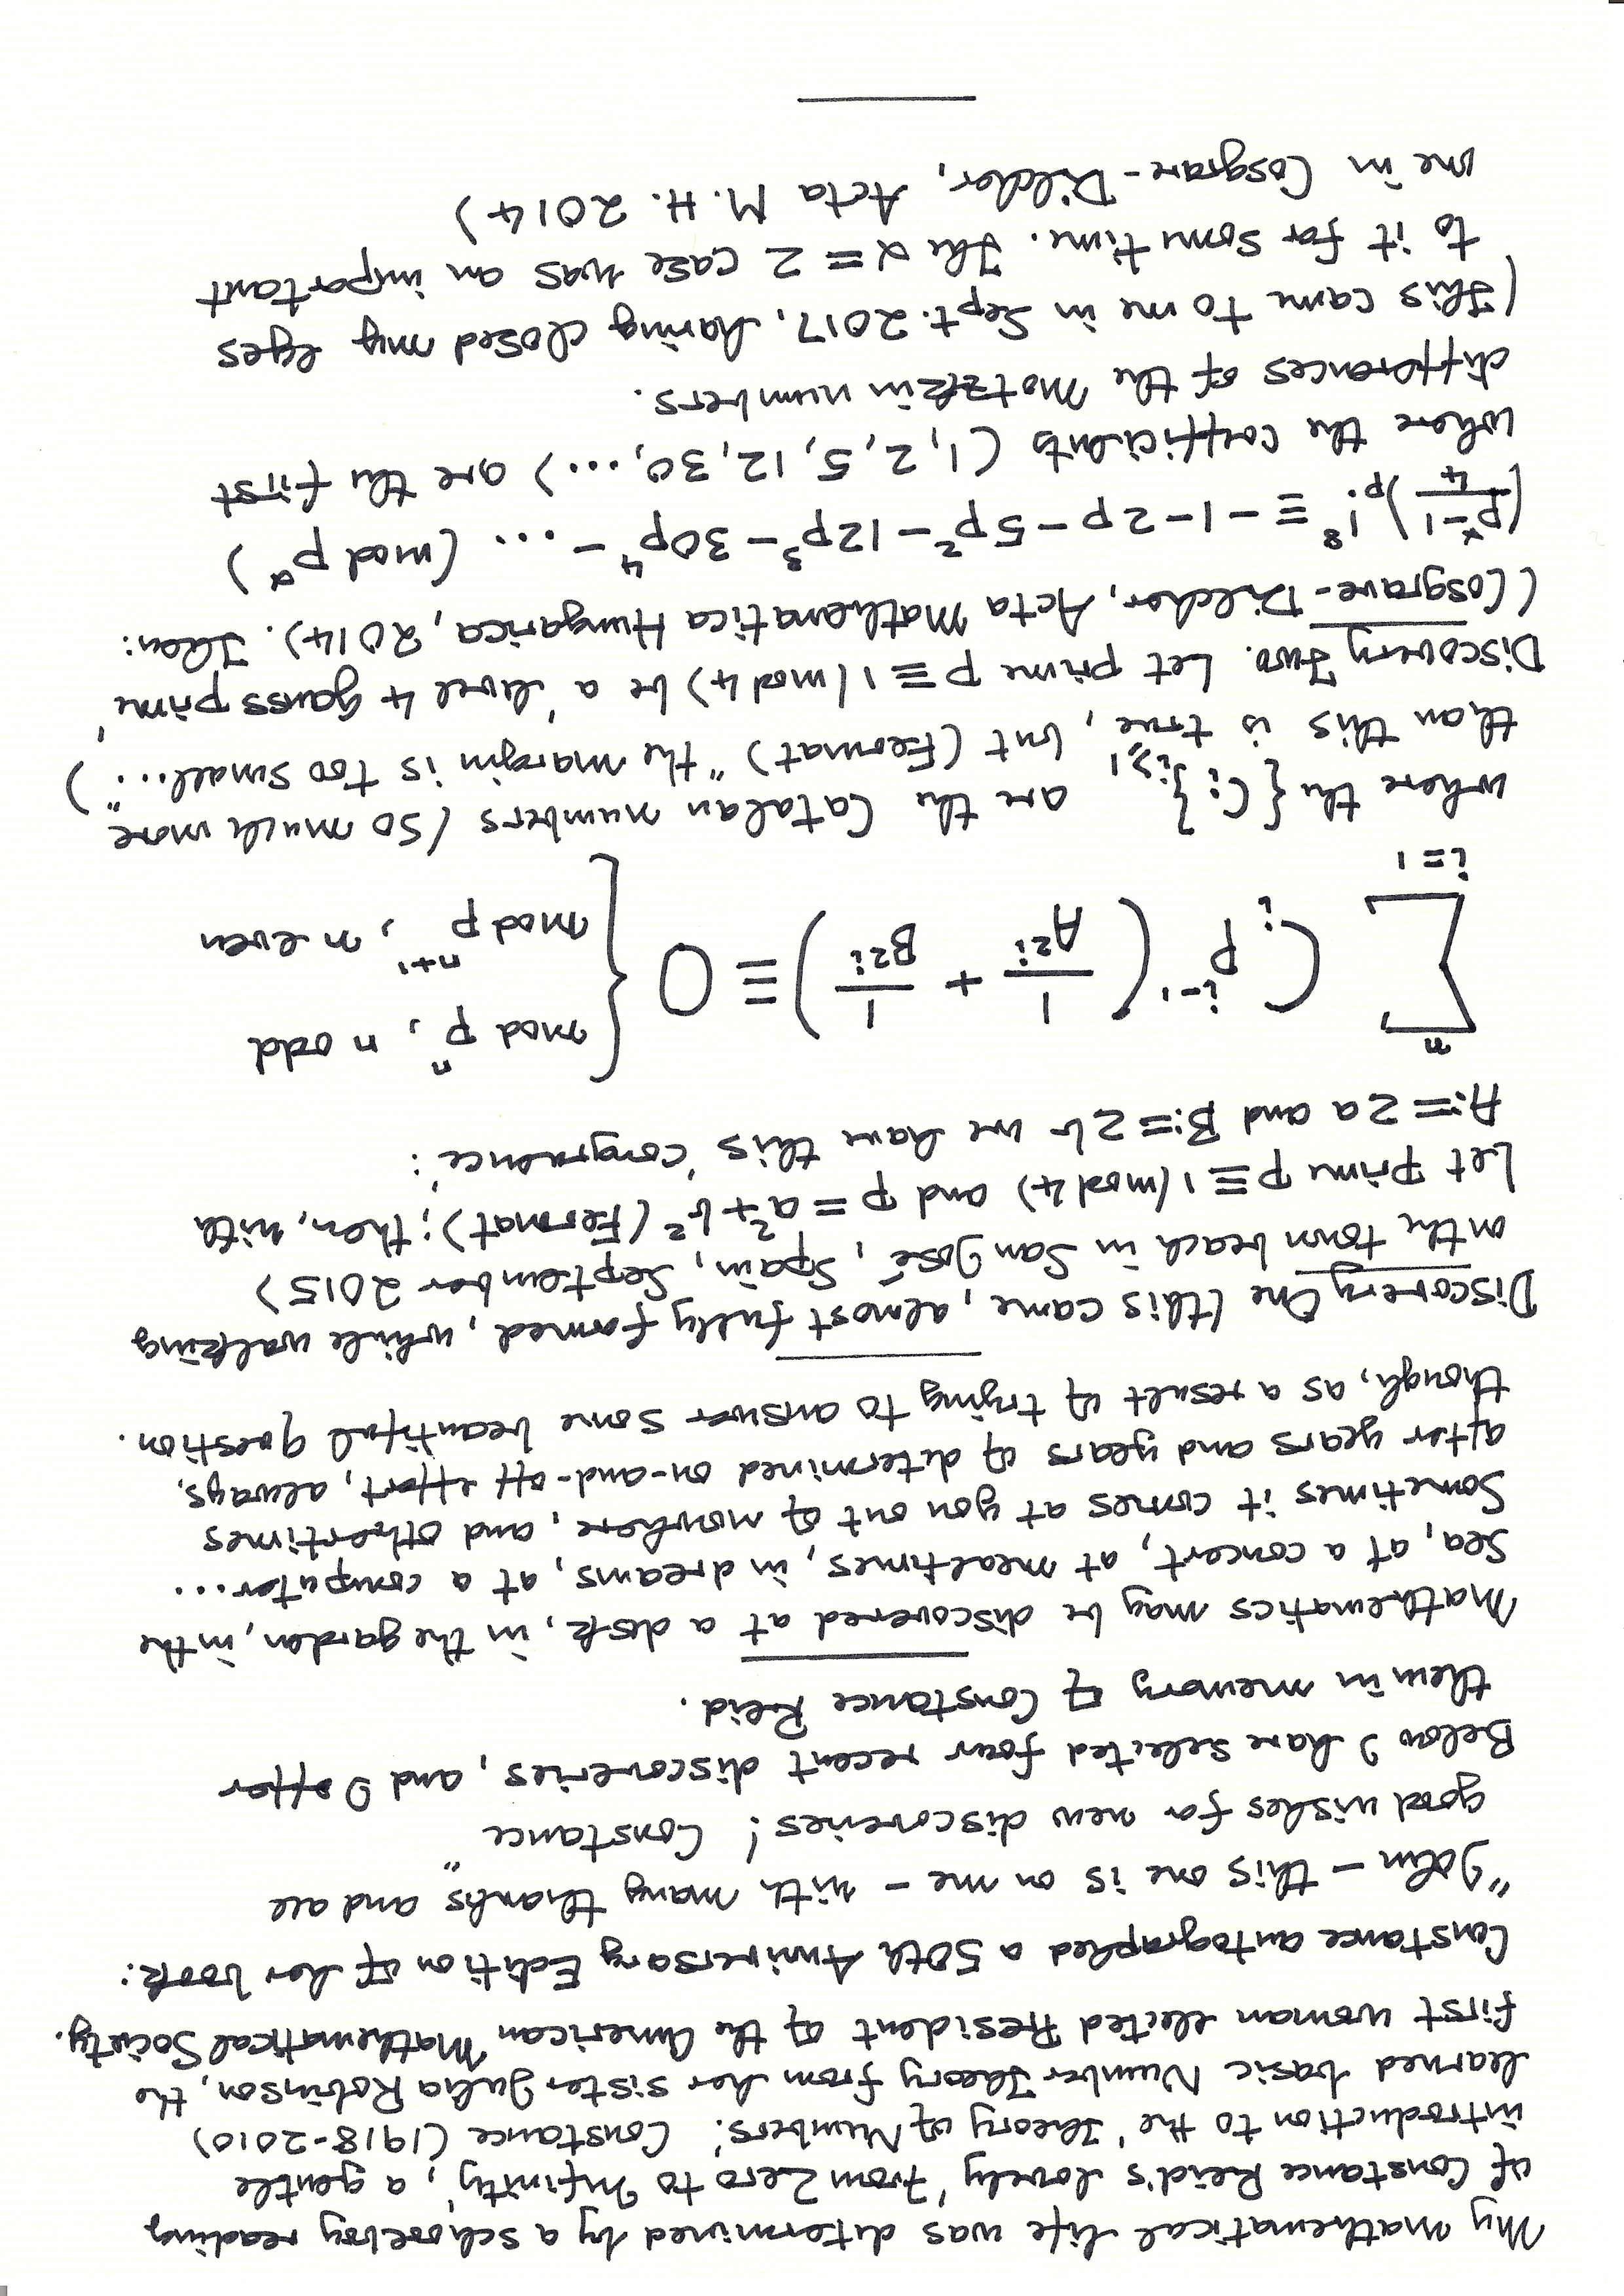 My mathematical life was determined by a schoolboy reading
of Constance Reid's lovely 'From Zero to Infinity', a gentle
introduction to the 'Theory of Numbers'. Constance (1918-2010)
learned basic Number Theory from her sister Julia Robinson, the
first woman elected President of the American Mathematical Society.
Constance autographed a 50th Anniversary Edition of her book:
"John – this one is on me – with many thanks and all
good wishes for new discoveries! Constance"
Below I have selected four recent discoveries, and I offer
them in memory of Constance Reid.
Mathematics may be discovered at a desk, in the garden, in the
sea, at a concert, at mealtimes, in dreams, at a computer...
Sometimes it comes at you out of nowhere, and othertimes
after years and years of determined on-and-off effort, always,
though, as a result of trying to answer some beautiful question.
Discovery One (this came, almost fully formed, while walking
on the town beach in San José, Spain, September 2015)
Let prime p ≡ 1 (mod 4) and p = a² + b² (Fermat); then, with
A := 2a and B := 2b we have this 'congruence':
∑_{i=1}^{n} C_i p^{i-1} (1/A^{2i} + 1/B^{2i}) ≡ 0 { mod p^n, n odd
mod p^{n+1}, n even
where the {C_i}_{i≥1} are the Catalan numbers (so much more
than this is true, but (Fermat) "the margin is too small...")
Discovery Two. Let prime p ≡ 1 (mod 4) be a 'level 4 Gauss prime'
(Cosgrave-Dilcher, Acta Mathematica Hungarica, 2014). Then:
((p^α-1)/4)_p!^8 ≡ -1-2p-5p²-12p³-30p⁴-... (mod p^α)
where the coefficients (1, 2, 5, 12, 30, ...) are the first
differences of the Motzkin numbers.
(This came to me in Sept. 2017, having closed my eyes
to it for some time. The α = 2 case was an important
one in Cosgrave-Dilcher, Acta M. H. 2014)